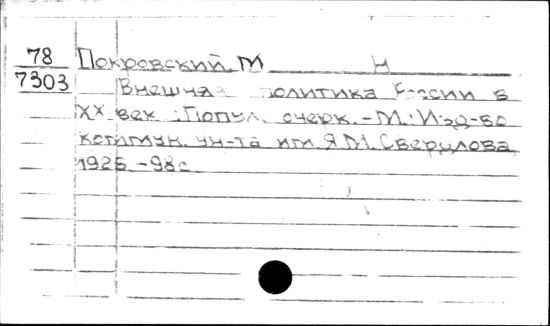 78 Покровский М Н
7303 Внешняя политика России в
XX век : Попул. очерк. - М.: Изд-во
коммун. ун-та им. Я М. Свердлова
1926. - 98с.